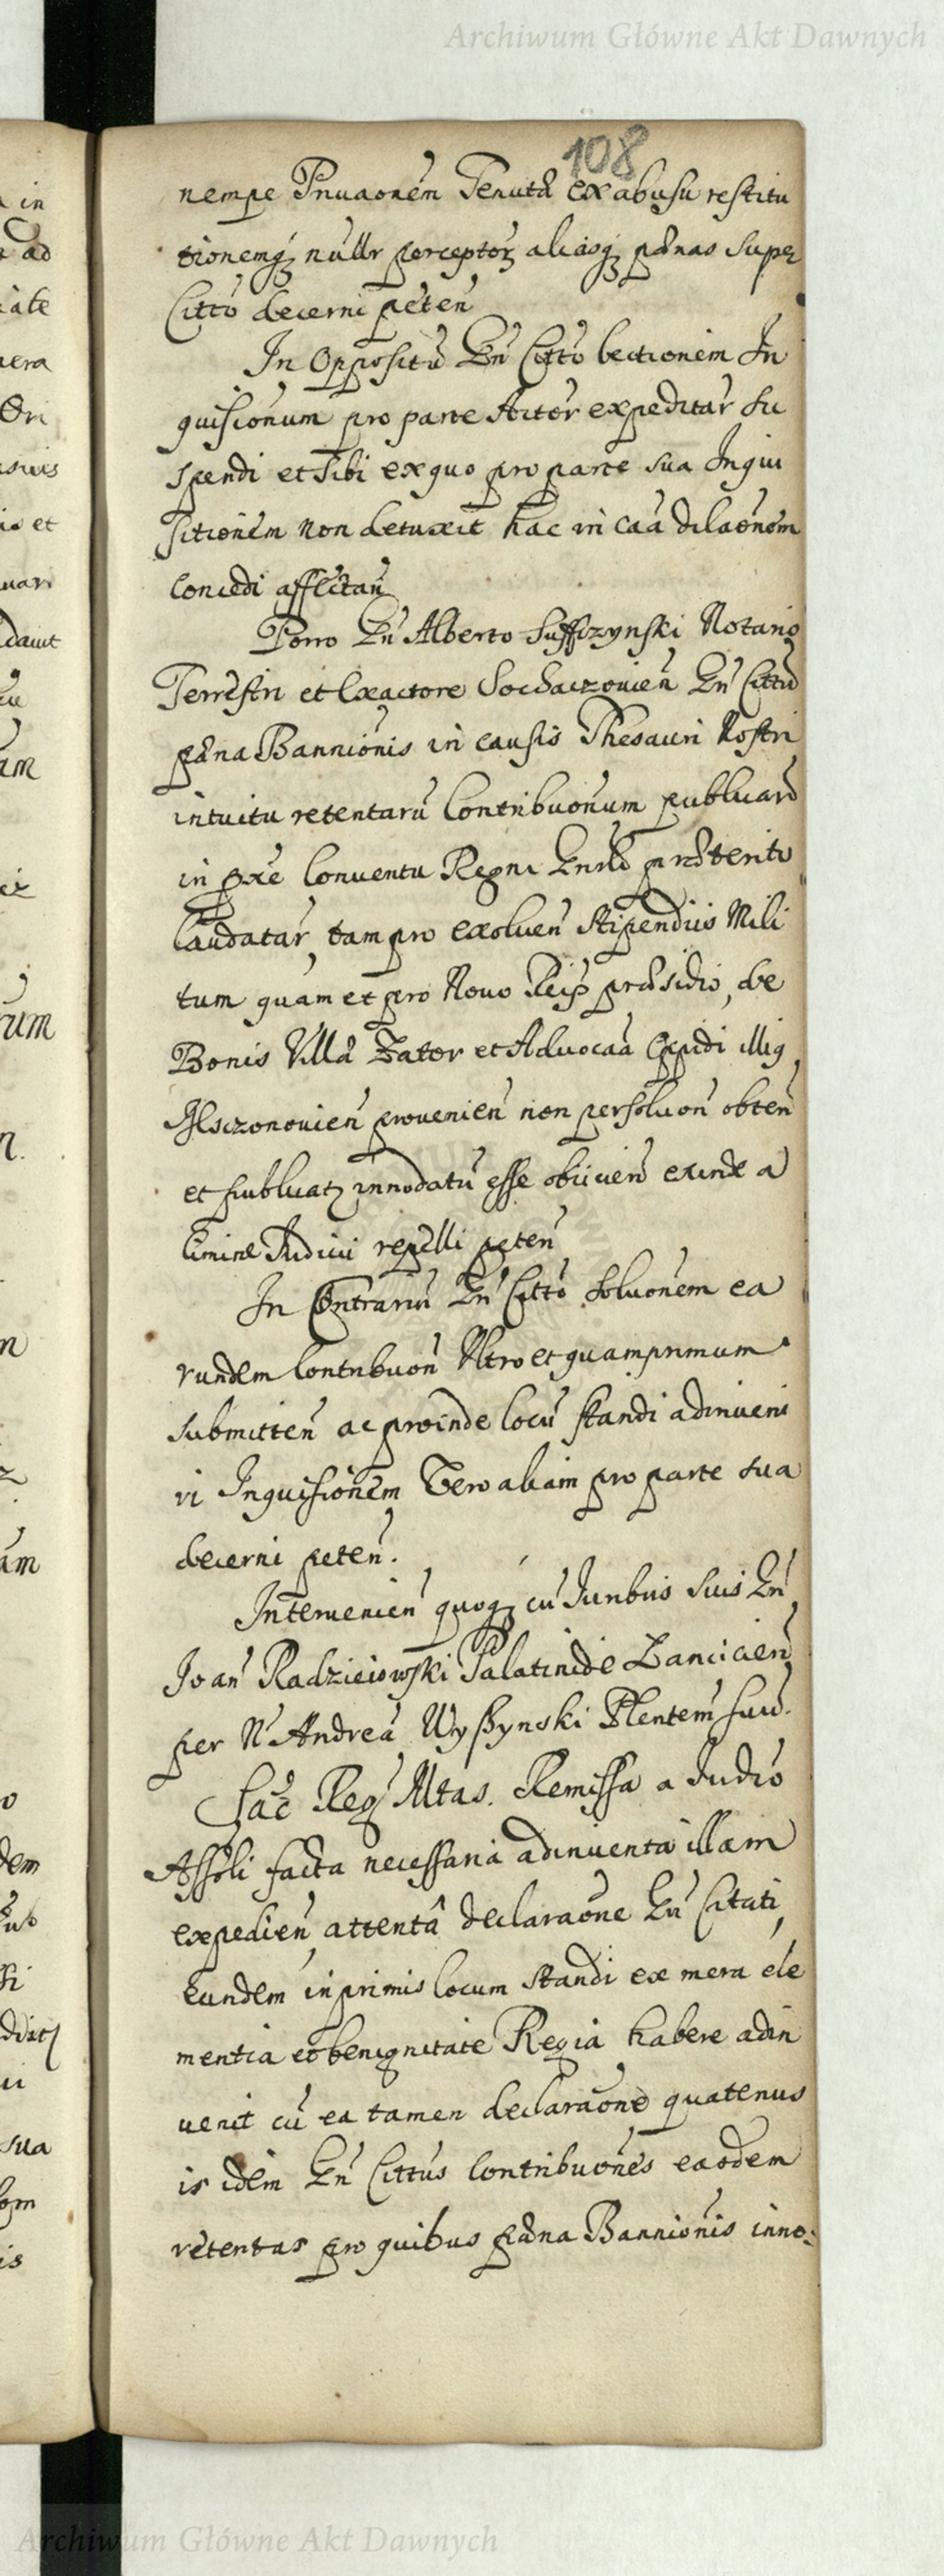 Archiwum Główne Akt Dawnych
108
nempe Privaonem Tenutæ ex abusu restitu
tionemq3 nullr perceptor aliasq3 pænas super
Citto decerni peten
In Oppositu Gn Citto lectionem In
quisionum pro parte Actor expeditar su
spendi et sibi ex quo pro parte sua Inqui
sitionem non detulit hac in caa dilaonem
concedi affectan
Porro Gn Alberto Suffczynski Notario
Terrestri et Exactore Sochaczovien Gn Cittu
pæna Bannionis in causis Thesauri Nostri
intuitu retentaru Contribuonum publicaru
in pxe Conventu Regni Gnrli præterito
laudatar, tam pro exolven stipendiis Mili
tum quam et pro Novo Reip præsidio, de
Bonis Villæ Zator et Advocaa Oppidi illiq
Msczonovien provenien non persoluon obten
et publicatæ innodatu esse obiicien exinde a
limine Iudicii repelli peten
In Contrariu Gn Citto soluonem ea
rundem Contribuon Ultro et quamprimum
submitten ac proinde locu standi adinveni
ri Inquisionem Vero aliam pro parte sua
decerni peten.
Intervenien quoq3 cu Iuribus suis Gn
Ioan Radzieiowski Palatinide Lancicien
per N Andrea Wyszynski Plentem suu.
Sac Reg Mtas. Remissa a Iudio
Assoli facta necessaria adinventa illam
expedien attentâ declaraone Gn Citati,
Eundem inprimis locum standi ex mera cle
mentia et benignitate Regia habere adin
venit cu ea tamen declaraone quatenus
is idem Gn Cittus Contribuones easdem
retentas pro quibus pæna Bannionis inno:
Archiwum Główne Akt Dawnych